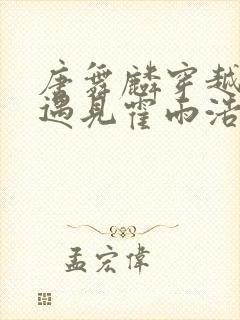 唐舞麟穿越
遇见霍雨浩
孟宏偉